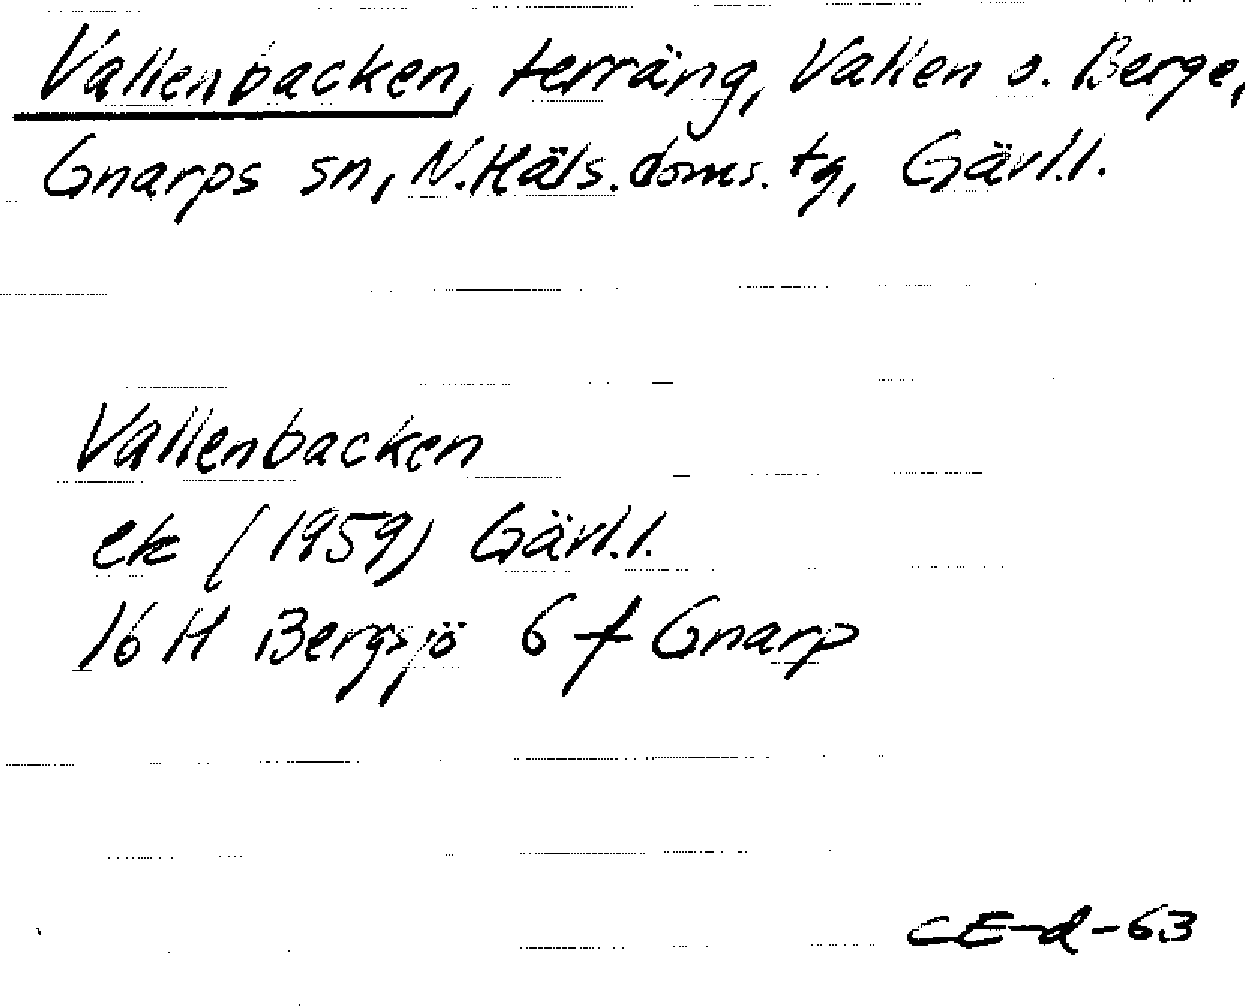 Vallenbacken, terräng, Vallen o. Berge,
Gnarps sn, N.Häls.doms.tg, Gävl.l.
Vallenbacken
ek (1959) Gävl.l.
16 H Bergsjö 6 f Gnarp
CE-d-63